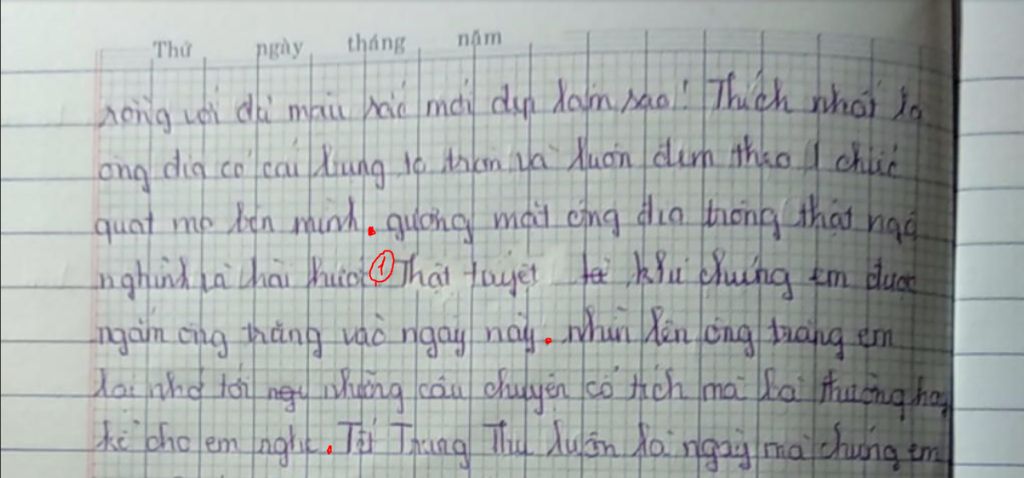 Thứ ngày tháng năm
rồng với đủ màu sắc mới đẹp làm sao! Thích nhất là
ông địa có cái bụng to tròn và luôn đem theo 1 chiếc
quạt mo bên mình. gương mặt ông địa trông thật ngộ
nghĩnh và hài hước ① Thật tuyệt khi chúng em được
ngắm ông trăng vào ngày này. nhìn lên ông trăng em
lại nhớ tới những câu chuyện cổ tích mà bà thường hay
kể cho em nghe. Tết Trung Thu luôn là ngày mà chúng em